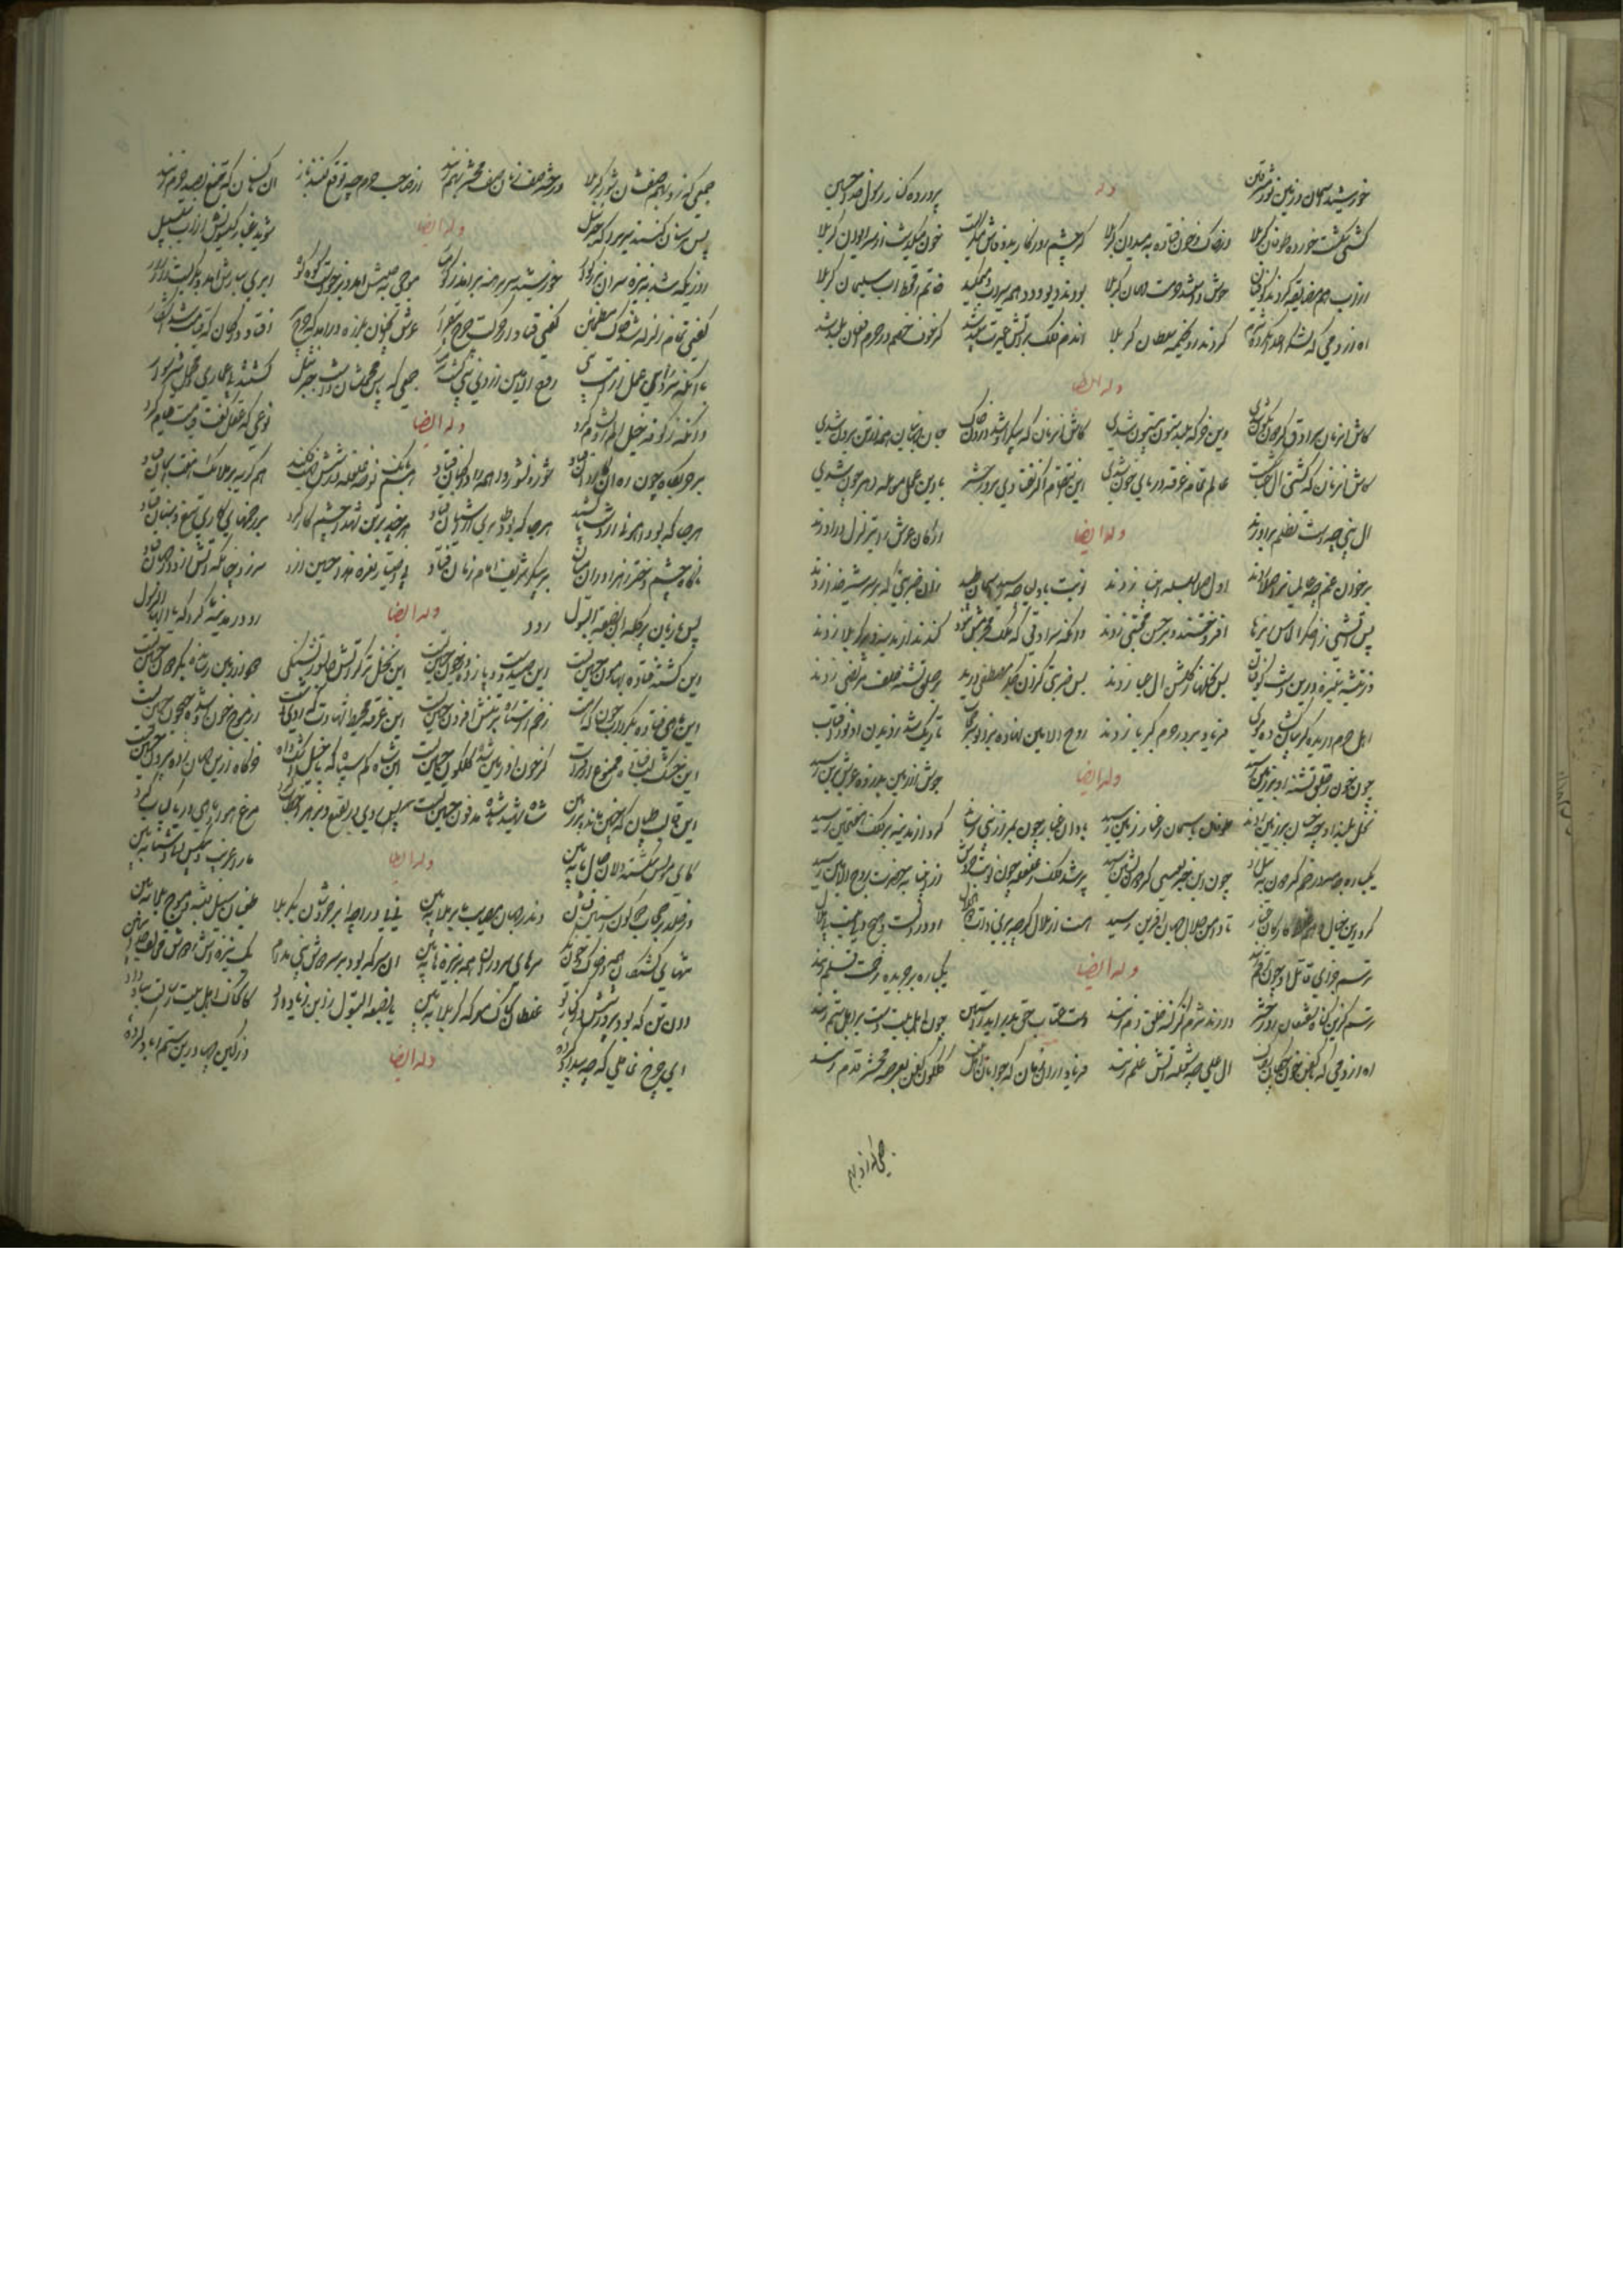 خورشید اسمان و زمین نور مشرقین وله پرورده کنار رسول خدا حسین
کشتی شکست خورده طوفان کربلا در خاک و خون فتاده به میدان کربلا گر چشم روزگار برو فاش میگریست خون میگذشت از سر ایوان کربلا
از اب هم مضایقه کردند کوفیان خوش داشتند حرمت مهمان کربلا بودند دیو و دد همه سیراب و میمکید خاتم ز قحط اب سلیمان کربلا
اه از دمی که لشکر اعدا نکرده شرم کردند رو بخیمه سلطان کربلا اندم فلک بر اتش غیرت سپند شد کز خوف خصم در حرم افغان بلند شد
وله ایضا
کاش انزمان سرادق گردون نگون شدی وین خرگه بلند ستون بیستون شدی کاش انزمان که پیکر او شد درون خاک جان جهانیان همه از تن برون شدی
کاش انزمان که کشتی ال نبی شکست عالم تمام غرقه دریای خون شدی این انتقام اگر نفتادی بروز حشر با این عمل معامله دهر چون شدی
ال نبی چو دست تظلم براورند وله ایضا ارکان عرش را بتزلزل دراورند
برخوان غم چو عالمیان را صلا زدند اول صلا بسلسله انبیا زدند نوبت باولیا چو رسید اسمان طپید زان ضربتی که بر سر شیر خدا زدند
پس اتشی ز اخگر الماس ریزها افروختند و بر حسن مجتبی زدند وانگه سرادقی که ملک محرمش نبود کندند از مدینه و در کربلا زدند
وز تیشه ستیزه درین دشت کوفیان بس نخلها ز گلشن ال عبا زدند بس ضربتی کزان جگر مصطفی درید بر حلق تشنه خلف مرتضی زدند
اهل حرم دریده گریبان گشاده موی فریاد بر در حرم کبریا زدند روح الامین نهاده بزانو سر حجاب تاریک شد ز دیدن او افتاب
چون خون ز حلق تشنه او بر زمین رسید وله ایضا جوش از زمین بذروه عرش برین رسید
نخل بلند او چو خسان بر زمین زدند طوفان باسمان ز غبار زمین رسید باد ان غبار چون بمزار نبی رساند گرد از مدینه بر فلک هفتمین رسید
یکباره جامه در خم گردون به نیل زد چون این خبر بعیسی گردون نشین رسید پر شد فلک ز غلغله چون نوبت خروش از انبیا به حضرت روح الامین رسید
کرد این خیال وهم غلط کار کان غبار تا دامن جلال جهان افرین رسید هست از ملال گرچه بری ذات ذوالجلال او در دلست و هیچ دلی نیست بی ملال
ترسم جزای قاتل او چون رقم زنند وله ایضا یکباره بر جریده رحمت قلم زنند
ترسم کزین گناه شفیعان روز حشر دارند شرم کز گنه خلق دم زنند دست عتاب حق بدر اید ز استین چون اهل بیت دست بر اهل ستم زنند
اه از دمی که با کفن خون چکان ز خاک ال علی چو شعله اتش علم زنند فریاد از ان زمان که جوانان اهل بیت گلگون کفن بعرصه محشر قدم زنند
جمعی که زد بهم
جمعی که زد بهم صفشان شور کربلا در حشر صف زنان صف محشر بهم زنند از صاحب حرم چه توقع کنند باز ان کسان که تیغ بصید حرم زنند
پس بر سنان کنند سری را که جبرئیل وله ایضا شوید غبار گیسویش از اب سلسبیل
روزیکه شد بنیزه سر ان بزرگوار خورشید سر برهنه برامد ز کوهسار موجی به جنبش امد و برخواست کوه کوه ابری ببارش امد و بگریست زار زار
گفتی تمام زلزله شد خاک مطمئن گفتی فتاد از حرکت چرخ بیقرار عرش انچنان بلرزه درامد که چرخ پیر افتاد در گمان که قیامت شد اشکار
با انکه سر زد این عمل از امت نبی روح الامین ز روی نبی گشت شرمسار جمعی که پاس محملشان داشت جبرئیل گشتند بی عماری و محمل شتر سوار
وانگه ز کوفه خیل الم رو بشام کرد وله ایضا نوعی که عقل گفت قیامت قیام کرد
بر حربگاه چون ره ان کاروان فتاد شور نشور واهمه را در گمان فتاد هم بانگ نوحه غلغله در شش جهت فکند هم گریه بر ملائک هفت اسمان فتاد
هر جا که بود اهوئی از دشت پا کشید هر جا که بود طایری از اشیان فتاد هرچند بر تن شهدا چشم کار کرد بر زخمهای کاری تیغ و سنان فتاد
ناگاه چشم دختر زهرا در ان میان بر پیکر شریف امام زمان فتاد بی اختیار نعره هذا حسین ازو سر زد چنانکه اتش ازو در جهان فتاد
پس با زبان پر گله ان بضعة البتول وله ایضا رو در مدینه کرد که یا ایها الرسول
این کشته فتاده بهامون حسین تست این صید دست و پا زده در خون حسین تست این نخل تر کز اتش جانسوز تشنگی دود از زمین رسانده بگردون حسین تست
این ماهی فتاده بدریای خون که هست زخم از ستاره بر تنش افزون حسین تست این غرقه محیط شهادت که روی دشت از موج خون او شده جیحون حسین تست
این خشک لب فتاده ممنوع از فرات کز خون او زمین شده گلگون حسین تست این شاه کم سپاه که با خیل اشک و اه خرگاه ازین جهان زده بیرون حسین تست
این قالب طپان که چنین مانده بر زمین شاه شهید ناشده مدفون حسین تست پس روی در بقیع و بزهرا خطاب کرد مرغ هوا و ماهی دریا کباب کرد
کای مونس شکسته دلان حال ما ببین وله ایضا ما را غریب و بیکس و بی اشنا ببین
در خلد بر حجاب دو کون استین فشان وندر جهان مصیبت ما بر ملا ببین نی نی درا چو ابر خروشان بکربلا طغیان سیل فتنه و موج بلا ببین
تنهای کشتگان همه در خاک و خون نگر سرهای سروران همه بر نیزه ها ببین ان سر که بود بر سر دوش نبی مدام یک نیزه اش ز دوش مخالف جدا ببین
وان تن که بود پرورشش در کنار تو غلطان بخاک معرکه کربلا ببین یا بضعة البتول ز ابن زیاد داد کو خاک اهل بیت رسالت بباد داد
ای چرخ غافلی که چه بیداد کرده وله ایضا وز کین چها درین ستم اباد کرده